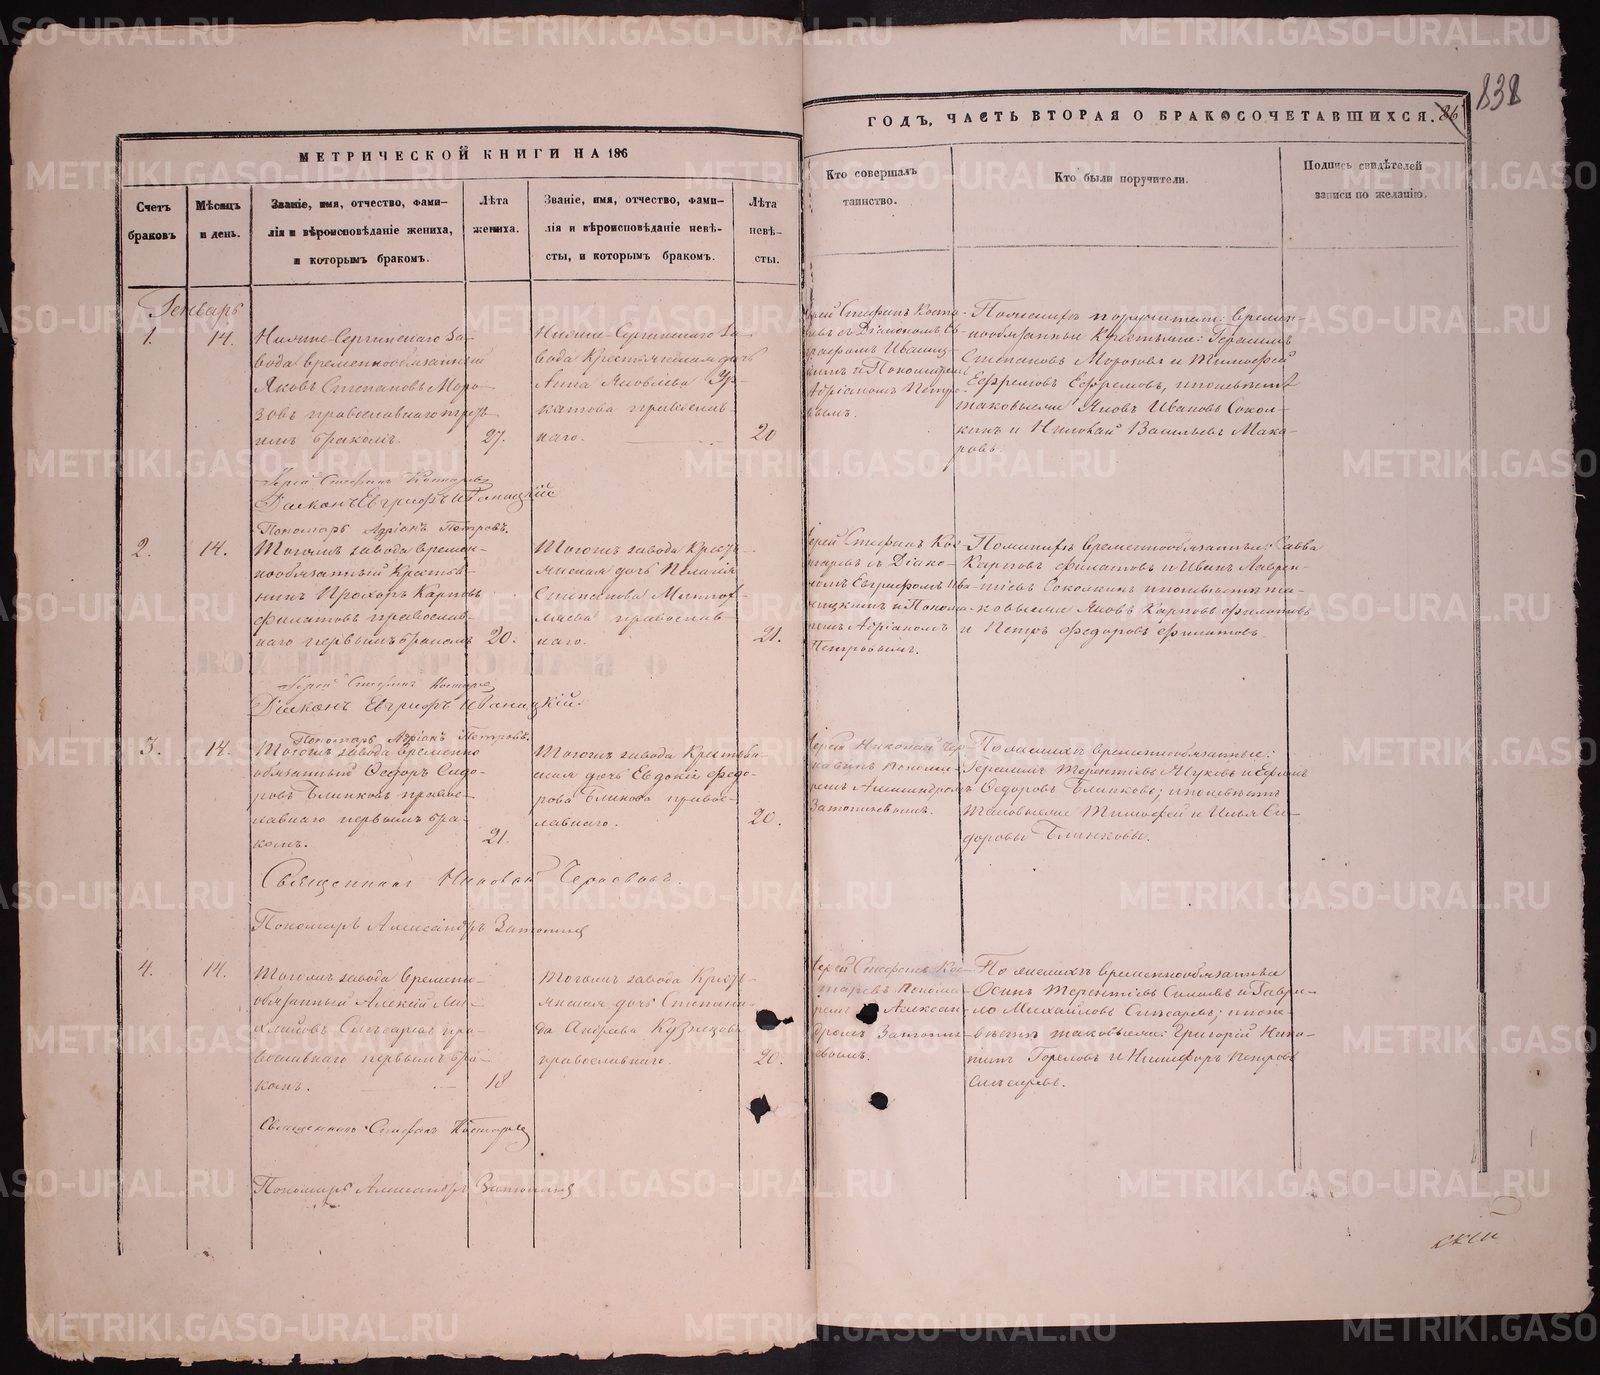 МЕТРИЧЕСКОЙ КНИГИ НА 186
Счетъ браковъ
Мѣсяцъ и день.
Званіе, имя, отчество, фами-
лія и вѣроисповѣданіе жениха,
и которымъ бракомъ.
Лѣта жениха.
Званіе, имя, отчество, фами-
лія и вѣроисповѣданіе невѣ-
сты, и которымъ бракомъ.
Лѣта
невѣ-
сты.
ГОДЪ, ЧАСТЬ ВТОРАЯ О БРАКОСОЧЕТАВШИХСЯ.
86
838
Кто совершалъ
таинство.
Кто были поручители.
Подпись свидѣтелей
записи по желанію.
Генварь
1.
14.
Нижне-Сергинскаго За-
вода временнообязанный
Яковъ Степановъ Моро-
зовъ православнаго
бракомъ.
27.
Нижне-Сергинскаго За-
вода Крестьянская дочь
Анна Яковлева
православ-
наго.
20
Іерей Стефанъ
съ Діакономъ
Иваниц-
кимъ и Пономаремъ
Адріаномъ Петро-
вымъ.
поручители: времен-
нообязанные Крестьяне: Герасимъ
Степановъ Морозовъ и Тимофей
Ефремовъ Ефремовъ, по невѣстѣ
таковыеже Яковъ Ивановъ Сокол-
кинъ и Николай Васильевъ Мака-
ровъ.
Іерей Стефанъ Костаревъ
Діаконъ Евграфъ Иваницкій
Пономарь Адріанъ Петровъ.
2.
14.
Тогожъ завода времен-
нообязанный Крестья-
нинъ Прохоръ Карповъ
Филатовъ православ-
наго первымъ бракомъ
20.
Тогожъ завода Кресть-
янская дочь Пелагія
Степанова
православ-
наго.
21.
Іерей Стефанъ Кос-
таревъ съ Діако-
номъ Евграфомъ Ива-
ницкимъ и Понома-
ремъ Адріаномъ
Петровымъ.
По женихѣ временнообязанные: Савва
Карповъ Филатовъ и Иванъ Лаврен-
тіевъ Соколкинъ по невѣстѣ та-
ковыеже Яковъ Карповъ Филатовъ
и Петръ Федоровъ Филатовъ.
Іерей Стефанъ Костаревъ
Діаконъ Евграфъ Иваницкій.
Пономарь Адріанъ Петровъ.
3.
14.
Тогожъ завода временно
обязанный Ѳедоръ Сидо-
ровъ Блинковъ правос-
лавнаго первымъ бра-
комъ.
21.
Тогожъ завода Крестья-
нская дочь Евдокія Федо-
рова Блинова правос-
лавнаго.
20.
Іерей Николай
Понома-
ремъ Александромъ
По женихѣ временнообязанные:
Герасимъ Терентіевъ Жуковъ и Ефимъ
Ѳедоровъ Блинковъ; по невѣстѣ
таковыеже Тимофей и Илья Си-
доровы Блинковы.
Священникъ Николай
Пономарь Александръ
4.
14.
Тогожъ завода времен-
обязанный Алексѣй Ми-
хайловъ Слѣсаревъ пра-
вославнаго первымъ бра-
комъ.
18
Тогожъ завода Кресть-
янская дочь Степани-
да Андреева Кузнецова
православнаго.
20.
Іерей Стефанъ Кос-
таревъ Понома-
ремъ Алексан-
дромъ
По женихѣ временнообязанные
Осипъ Терентіевъ и Гаври-
ло Михайловъ Слѣсаревъ; по не-
вѣстѣ таковыеже: Григорій Ники-
тинъ Гореловъ и Никифоръ Петровъ
Слѣсаревъ.
Священникъ Стефанъ Костаревъ
Пономарь Александръ
ский